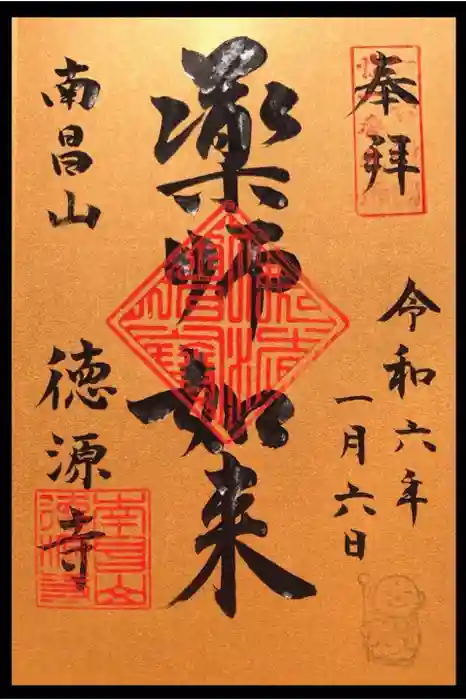 奉拝
令和六年
一月六日
薬師如来
南昌山
徳源寺